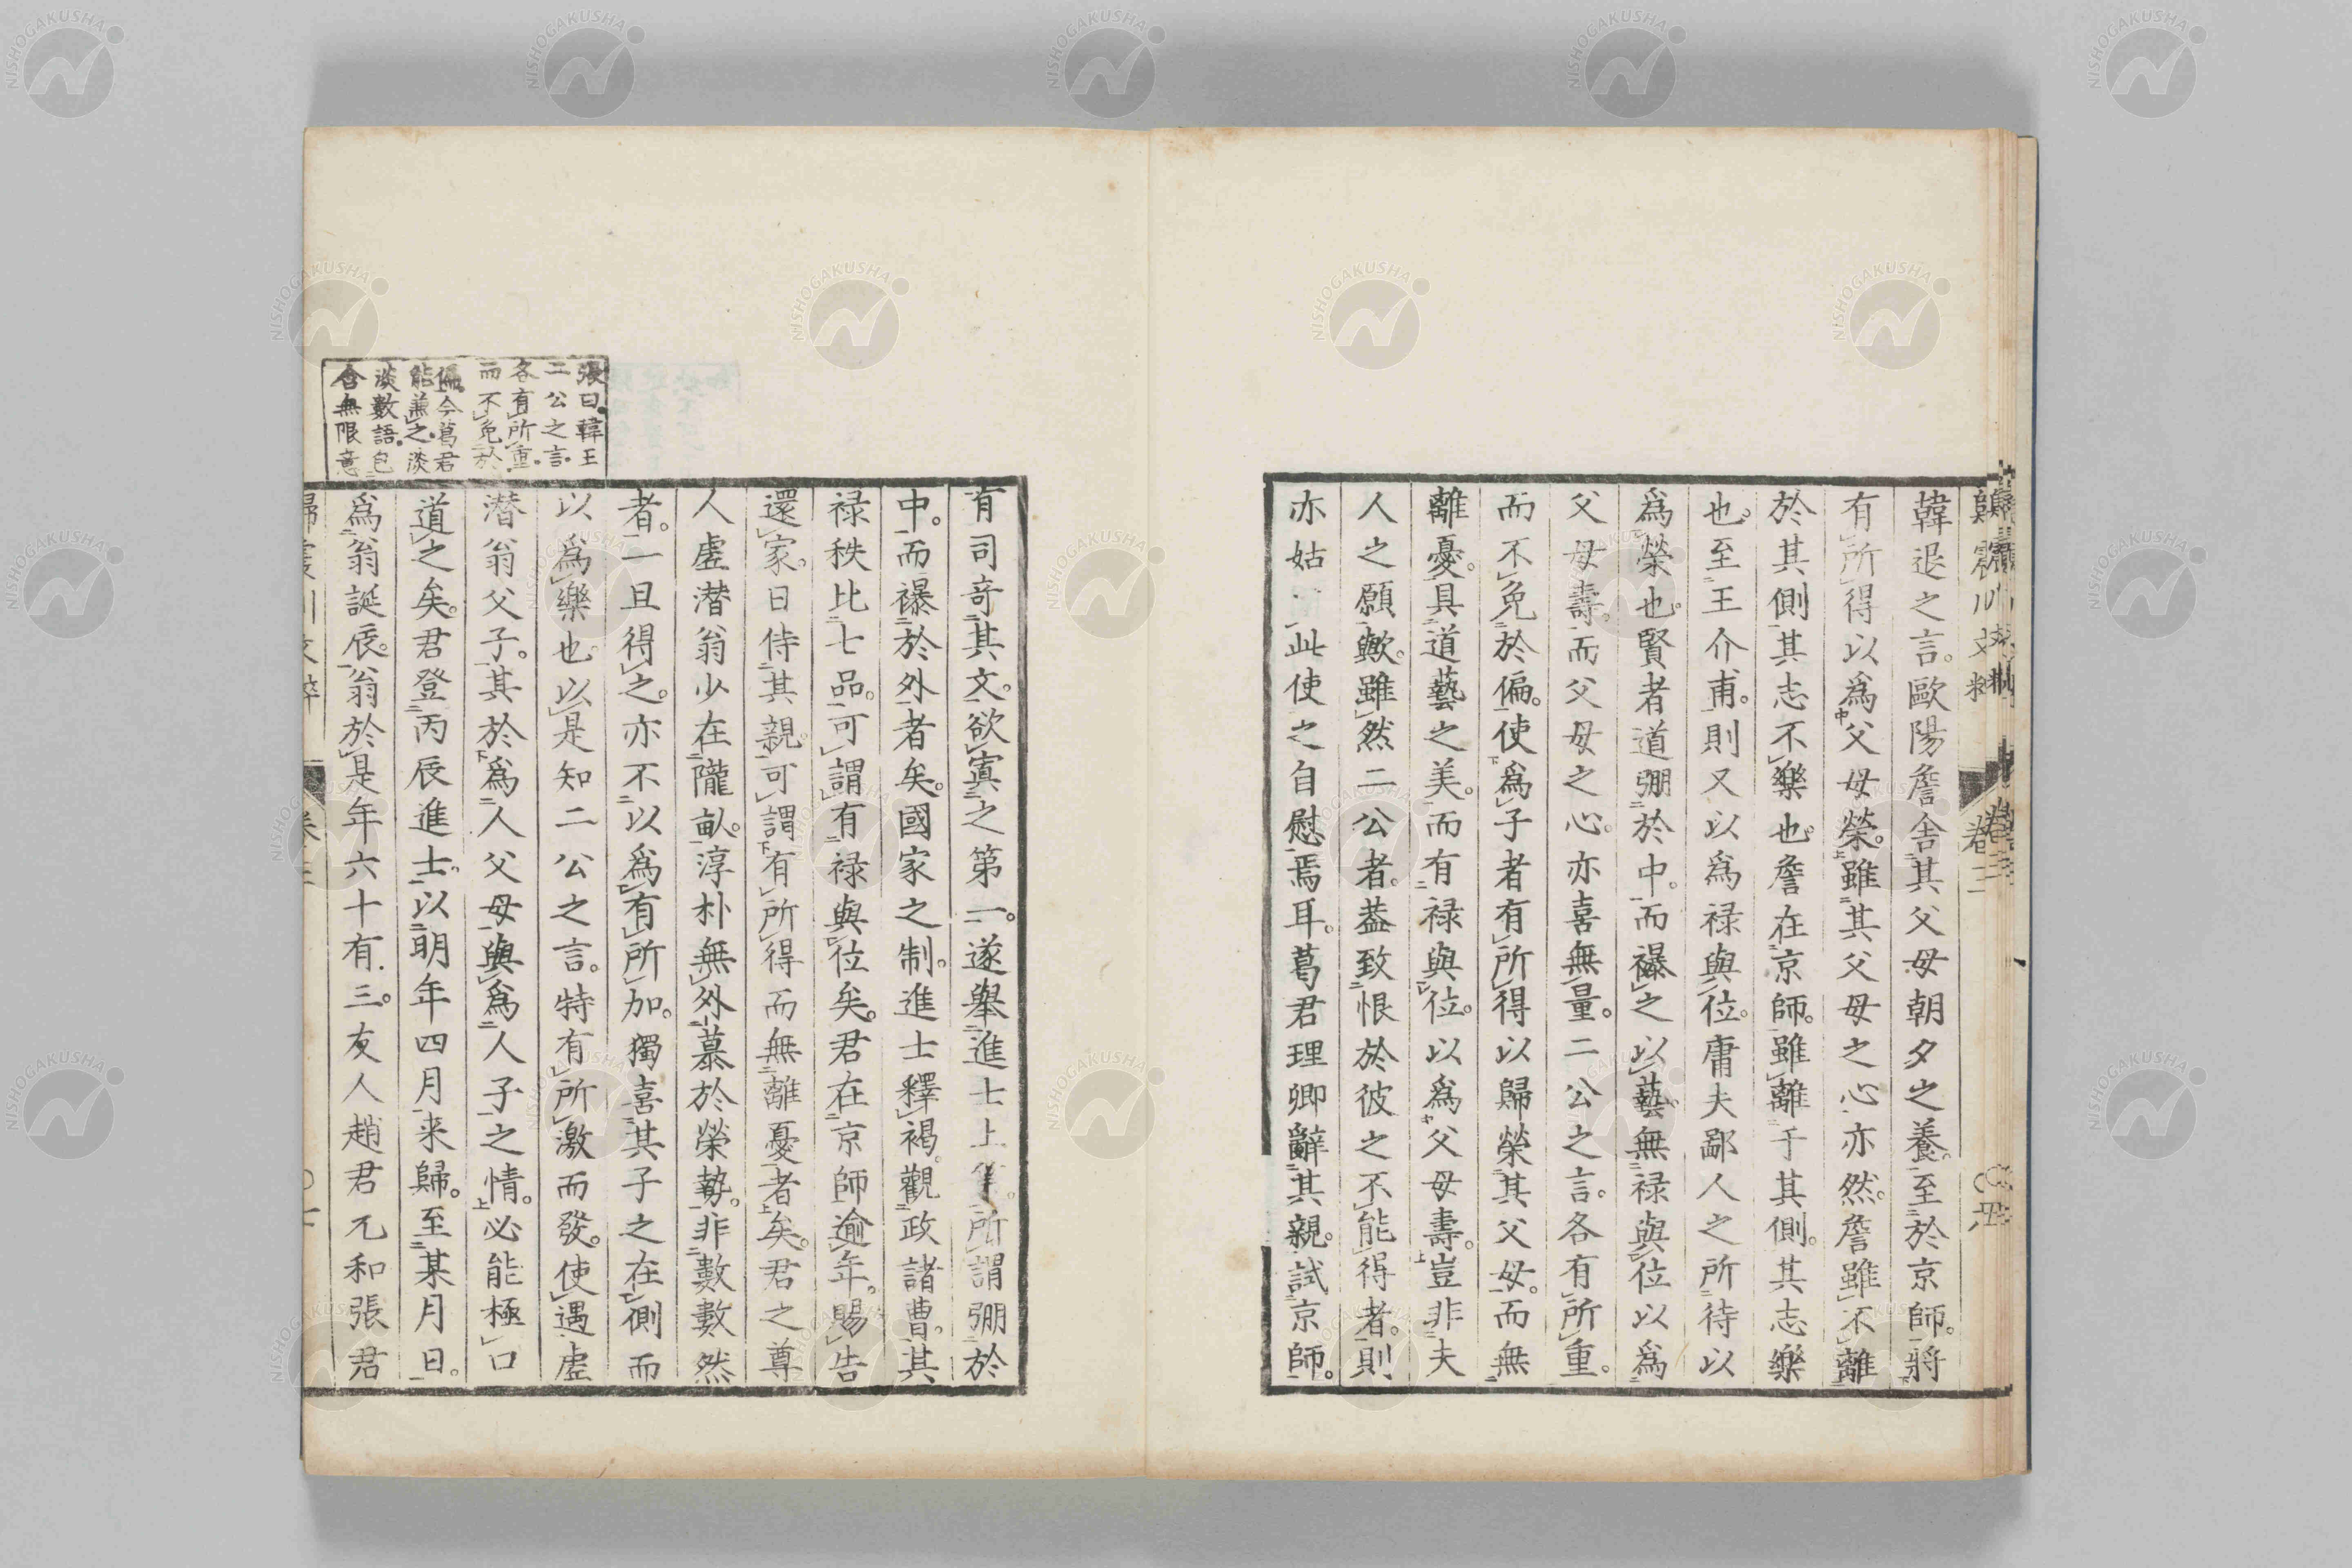 韓退之言。歐陽詹舍其父母朝夕之養。至於京師。將
有所得以為父母榮。雖其父母之心亦然。詹雖不離
於其側其志不樂也。詹在京師。雖離于其側。其志樂
也。至王介甫。則又以為禄與位。庸夫鄙人之所待以
為榮也。賢者道弸於中。而襮之以藝。無禄與位以為
父母壽。而父母之心。亦喜無量。二公之言。各有所重。
而不免於偏。使為子者有所得以歸榮其父母。而無
離憂。具道藝之美。而有禄與位。以為父母壽。豈非夫
人之願歟。雖然二公者。葢致恨於彼之不能得者。則
亦姑此使之自慰焉耳。葛君理卿辭其親。試京師。
有司奇其文。欲寘之第一。遂舉進士上第。所謂弸於
中。而襮於外者矣。國家之制。進士釋褐。觀政諸曹。其
禄秩比七品。可謂有禄與位矣。君在京師逾年。賜告
還家。日侍其親。可謂有所得而無離憂者矣。君之尊
人虛潛翁少在隴畝。淳朴無外慕於榮勢。非數數然
者。一旦得之。亦不以為有所加。獨喜其子之在側而
以為樂也。以是知二公之言。特有所激而發。使遇虛
潛翁父子。其於為人父母與為人子之情。必能極口
道之矣。君登丙辰進士。以明年四月来歸。至某月日。
為翁誕辰。翁於是年六十有三。友人趙君元和張君
張曰韓王
二公之言
各有所重
而不免於
偏今葛君
能兼之淡
淡數語包
含無限意
歸震川文粹
卷三